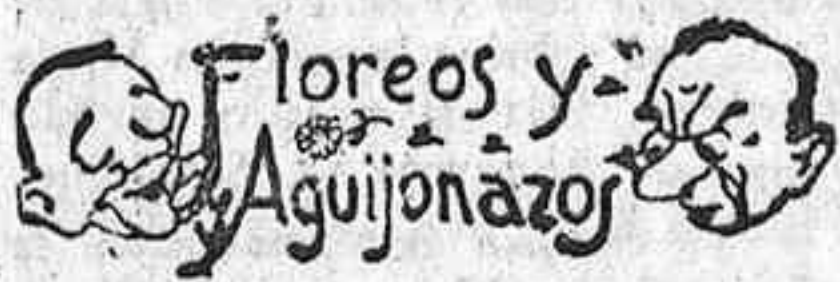 Floreos y
Aguijonazos